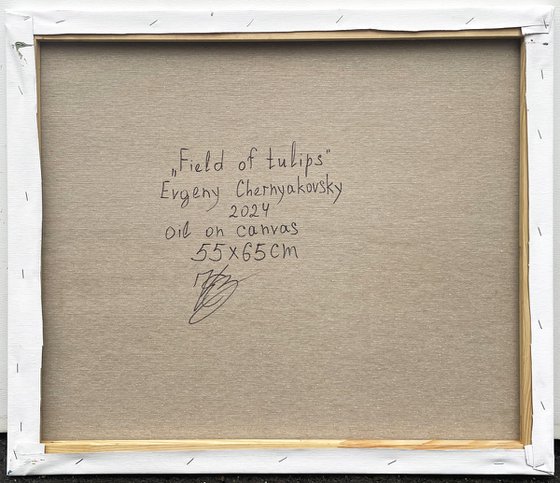 „Field of tulips"
Evgeny Chernyakovsky
2024
oil on canvas
55x65cm